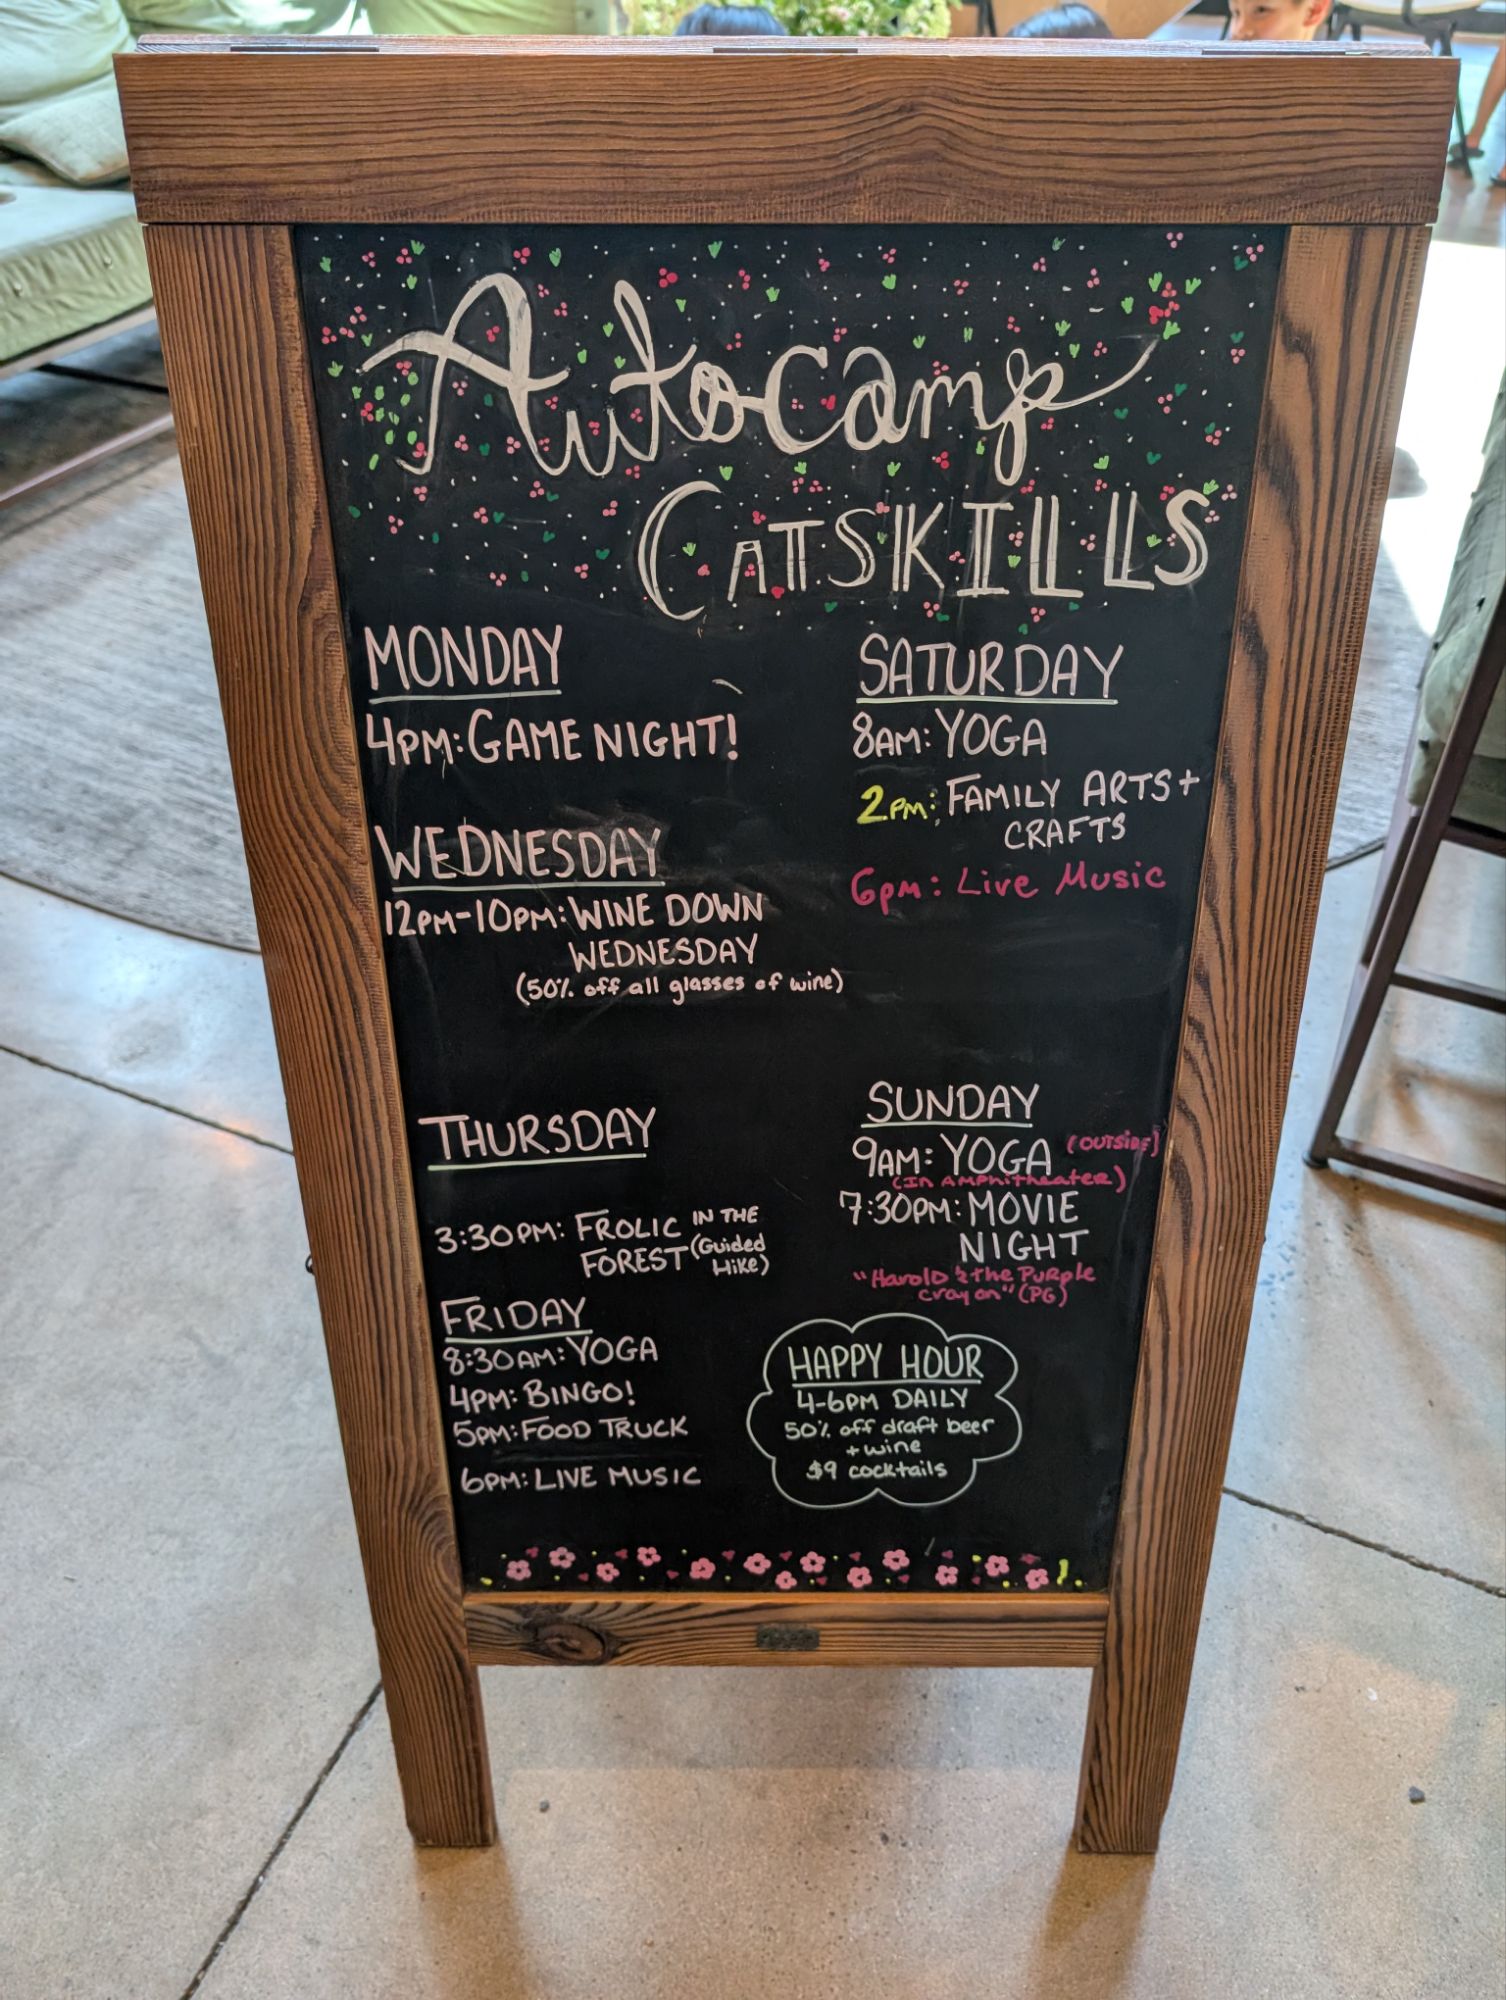 AutoCamp
CATSKILLS
MONDAY
4PM: GAME NIGHT!
WEDNESDAY
12PM-10PM: WINE DOWN
WEDNESDAY
(50% off all glasses of wine)
THURSDAY
3:30PM: FROLIC IN THE
FOREST (Guided
Hike)
FRIDAY
8:30AM: YOGA
4PM: BINGO!
5PM: FOOD TRUCK
6PM: LIVE MUSIC
SATURDAY
8AM: YOGA
2PM: FAMILY ARTS +
CRAFTS
6pm: Live Music
SUNDAY
9AM: YOGA (OUTSIDE)
(In AMPhitheater)
7:30PM: MOVIE
NIGHT
"Harold & the Purple
Crayon" (PG)
HAPPY HOUR
4-6PM DAILY
50% off draft beer
+ wine
$9 cocktails